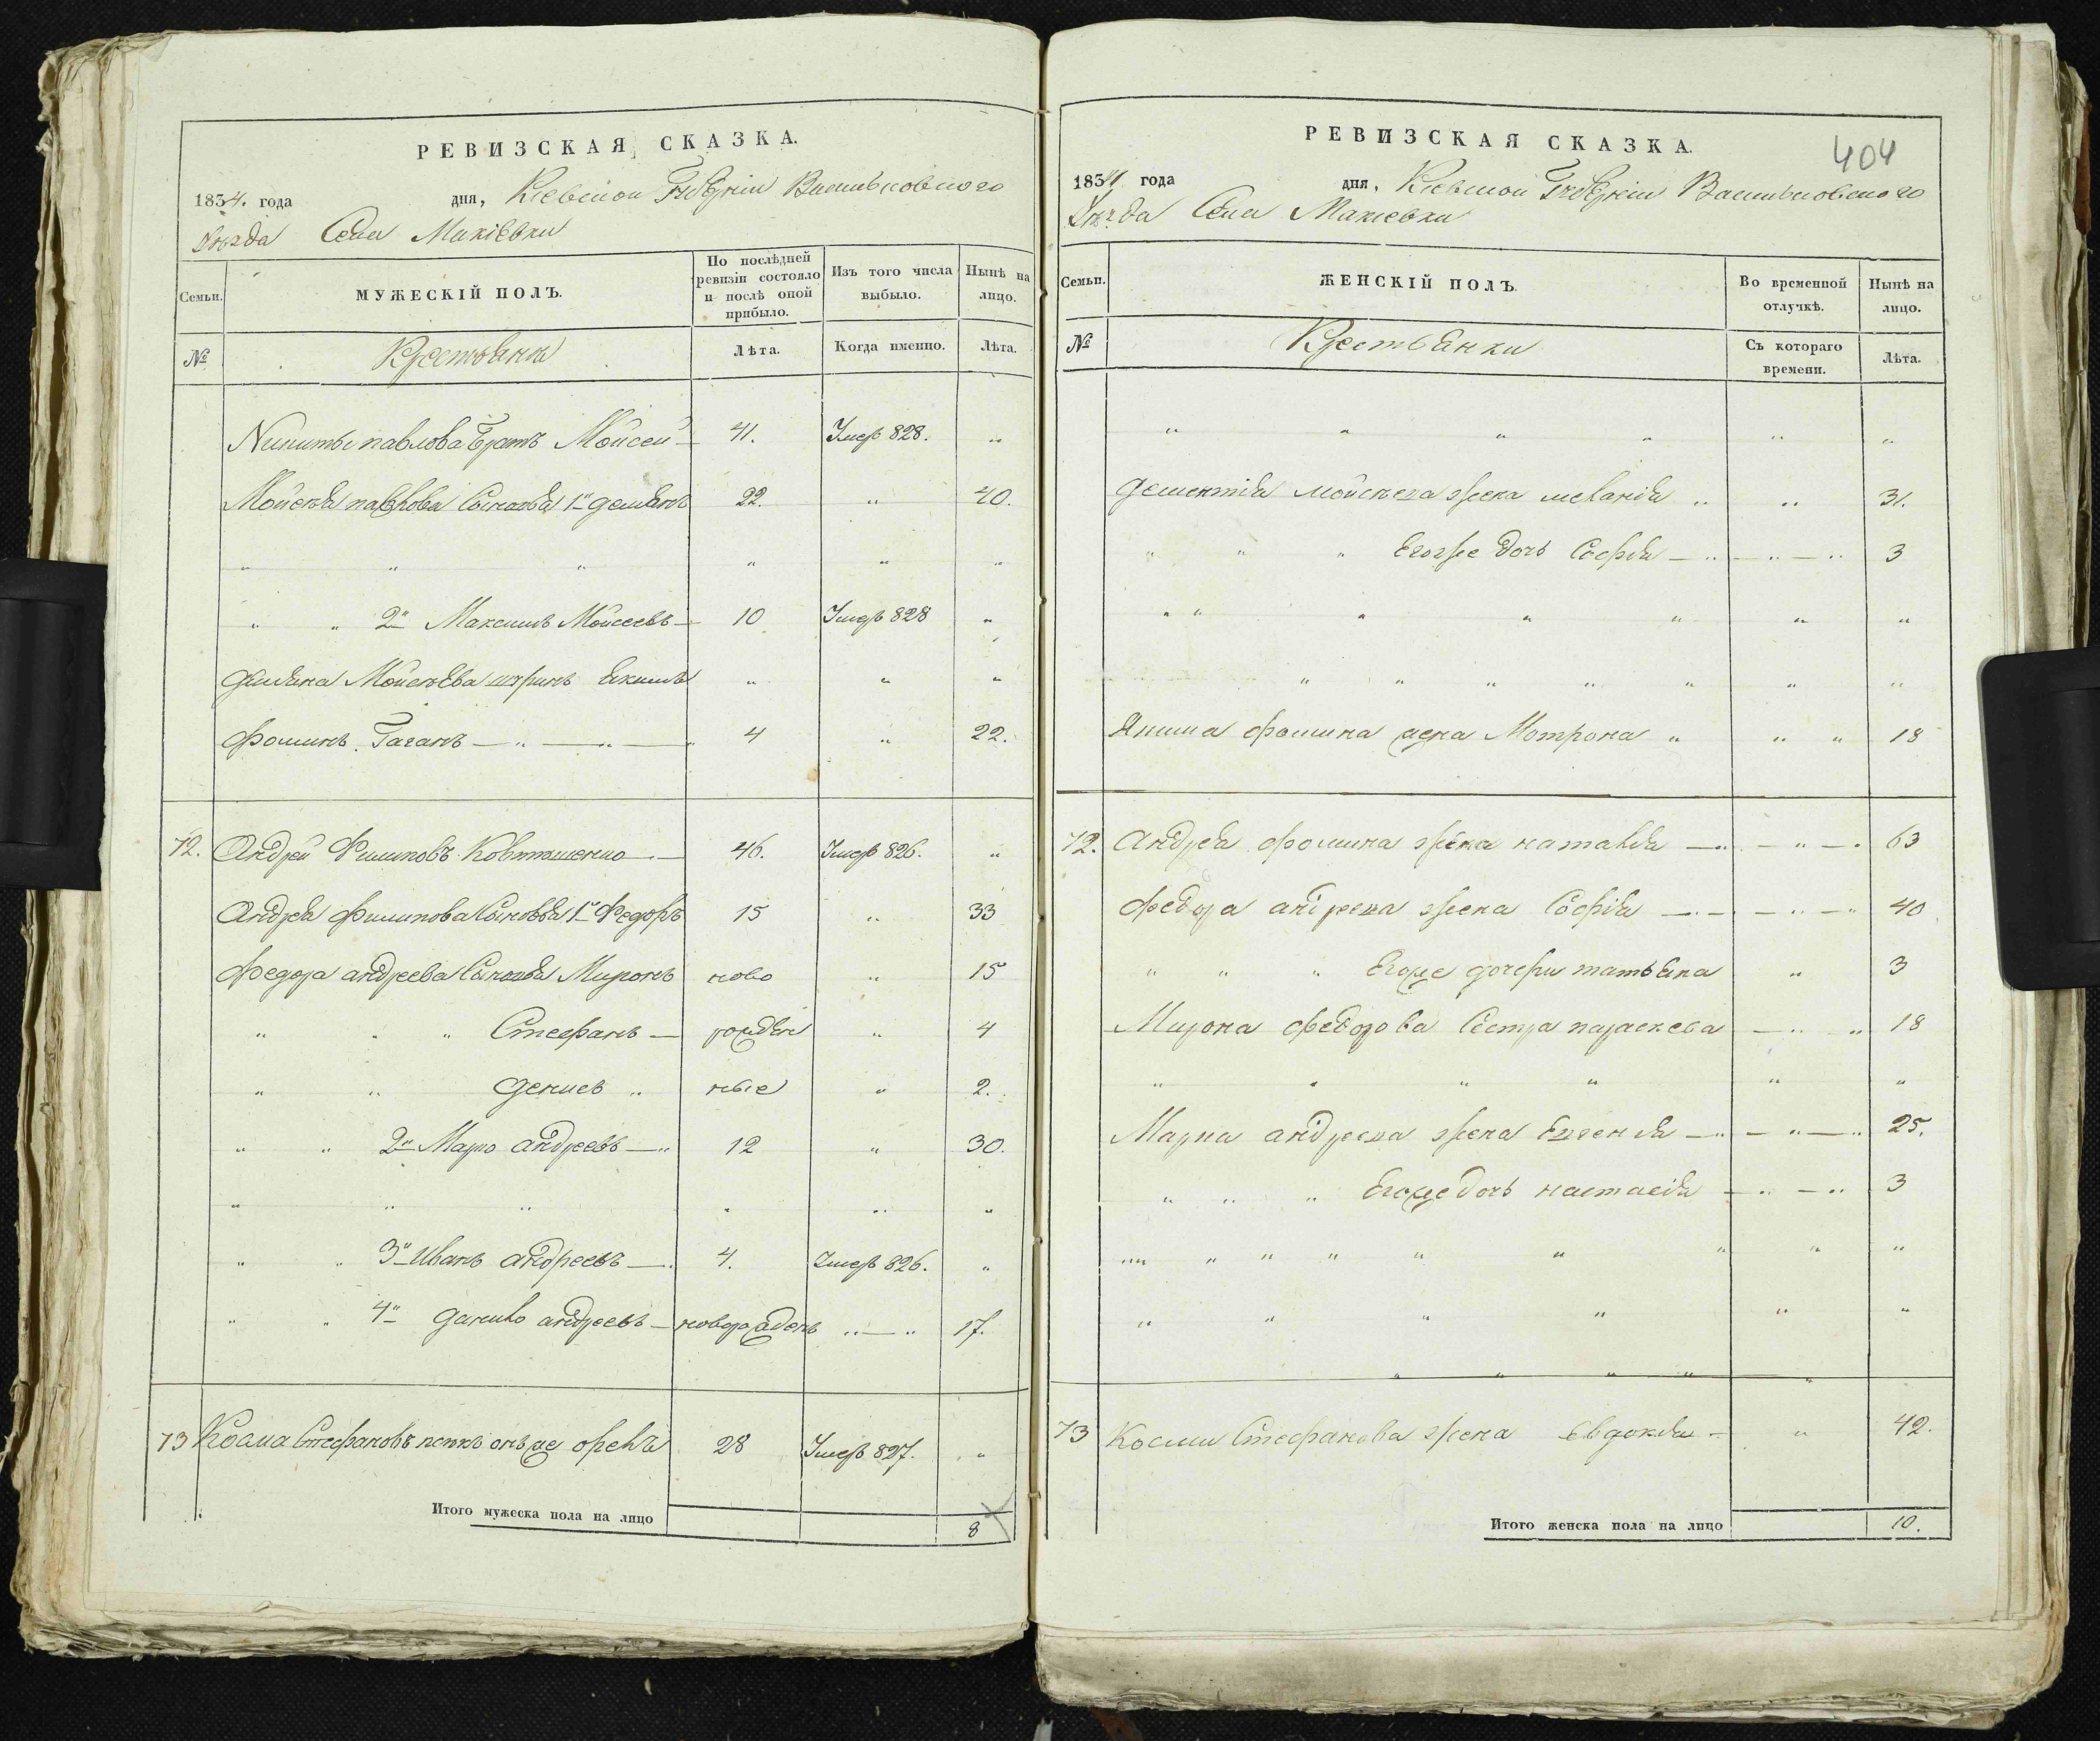 РЕВИЗСКАЯ СКАЗКА.
1834. года дня, Кіевской Губерніи Васильковского
Уезда Села Макіевки
Семьи.
МУЖЕСКІЙ ПОЛЪ.
По послѣдней ревизіи состояло и послѣ оной прибыло.
Изъ того числа выбыло.
Нынѣ на лицо.
№
Крестьяне
Лѣта.
Когда именно.
Лѣта.
Никиты павлова Братъ Мойсей 41. Умеръ 828. "
Мойсея павлова Сыновья 1й демянъ 22. " 40.
" " " " " "
" " 2й Максимъ Мойсеевъ 10 Умеръ 828 "
демяна Мойсеева Якимъ " " "
Фоминъ. Гаганъ 4 " 22.
72. Андрей Филиповъ Ковтышенко 46. Умеръ 826. "
Андрея Филипова Сыновья 1й Федоръ 15 " 33
Федора андреева Сыновья Миронъ ново " 15
" " " Стефанъ рожден " 4
" " денисъ " ные " 2.
" " 2й Марко андреевъ 12 " 30.
" " " " " "
" " 3й Иванъ андреевъ 4. Умеръ 826. "
" " 4й данило андреевъ новорожденъ " " 17.
73 Косма Стефановъ онъ же орелъ 28 Умеръ 827. "
Итого мужеска пола на лицо 8
РЕВИЗСКАЯ СКАЗКА.
404
1834 года дня, Кіевской Губерніи Васильковского
Уезда Села Макіевки
Семьи.
ЖЕНСКІЙ ПОЛЪ.
Во временной отлучкѣ.
Нынѣ на лицо.
№
Крестьянки
Съ котораго времени.
Лѣта.
" " " " " "
мойсеева жена меланія " " 31.
" " " Егоже дочь Софія " " " 3
" " " " " " "
" " " " " " "
Якима фомина жена Мотрона " " " 18
72. Андрея фомина жена наталія " " " 63
Федора андреева жена Софія " " " 40
" " " Егоже дочери татьяна " 3
Мирона федорова Сестра параскева " " 18
" " " " " "
Марка андреева жена Евгенія " " " 25.
" " " Егоже дочь настасія " " 3
" " " " " " " " "
" " " " " "
" " " " "
73 Косми Стефанова жена Евдокія " " 42.
Итого женска пола на лицо 10.